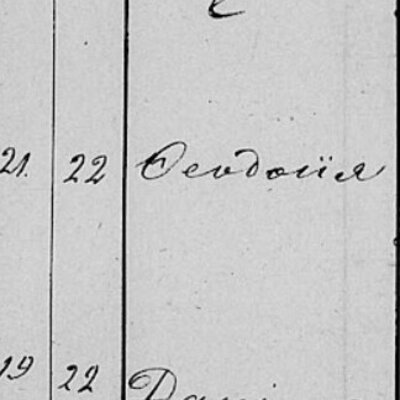 21. 22 Ѳеодосія
19 22